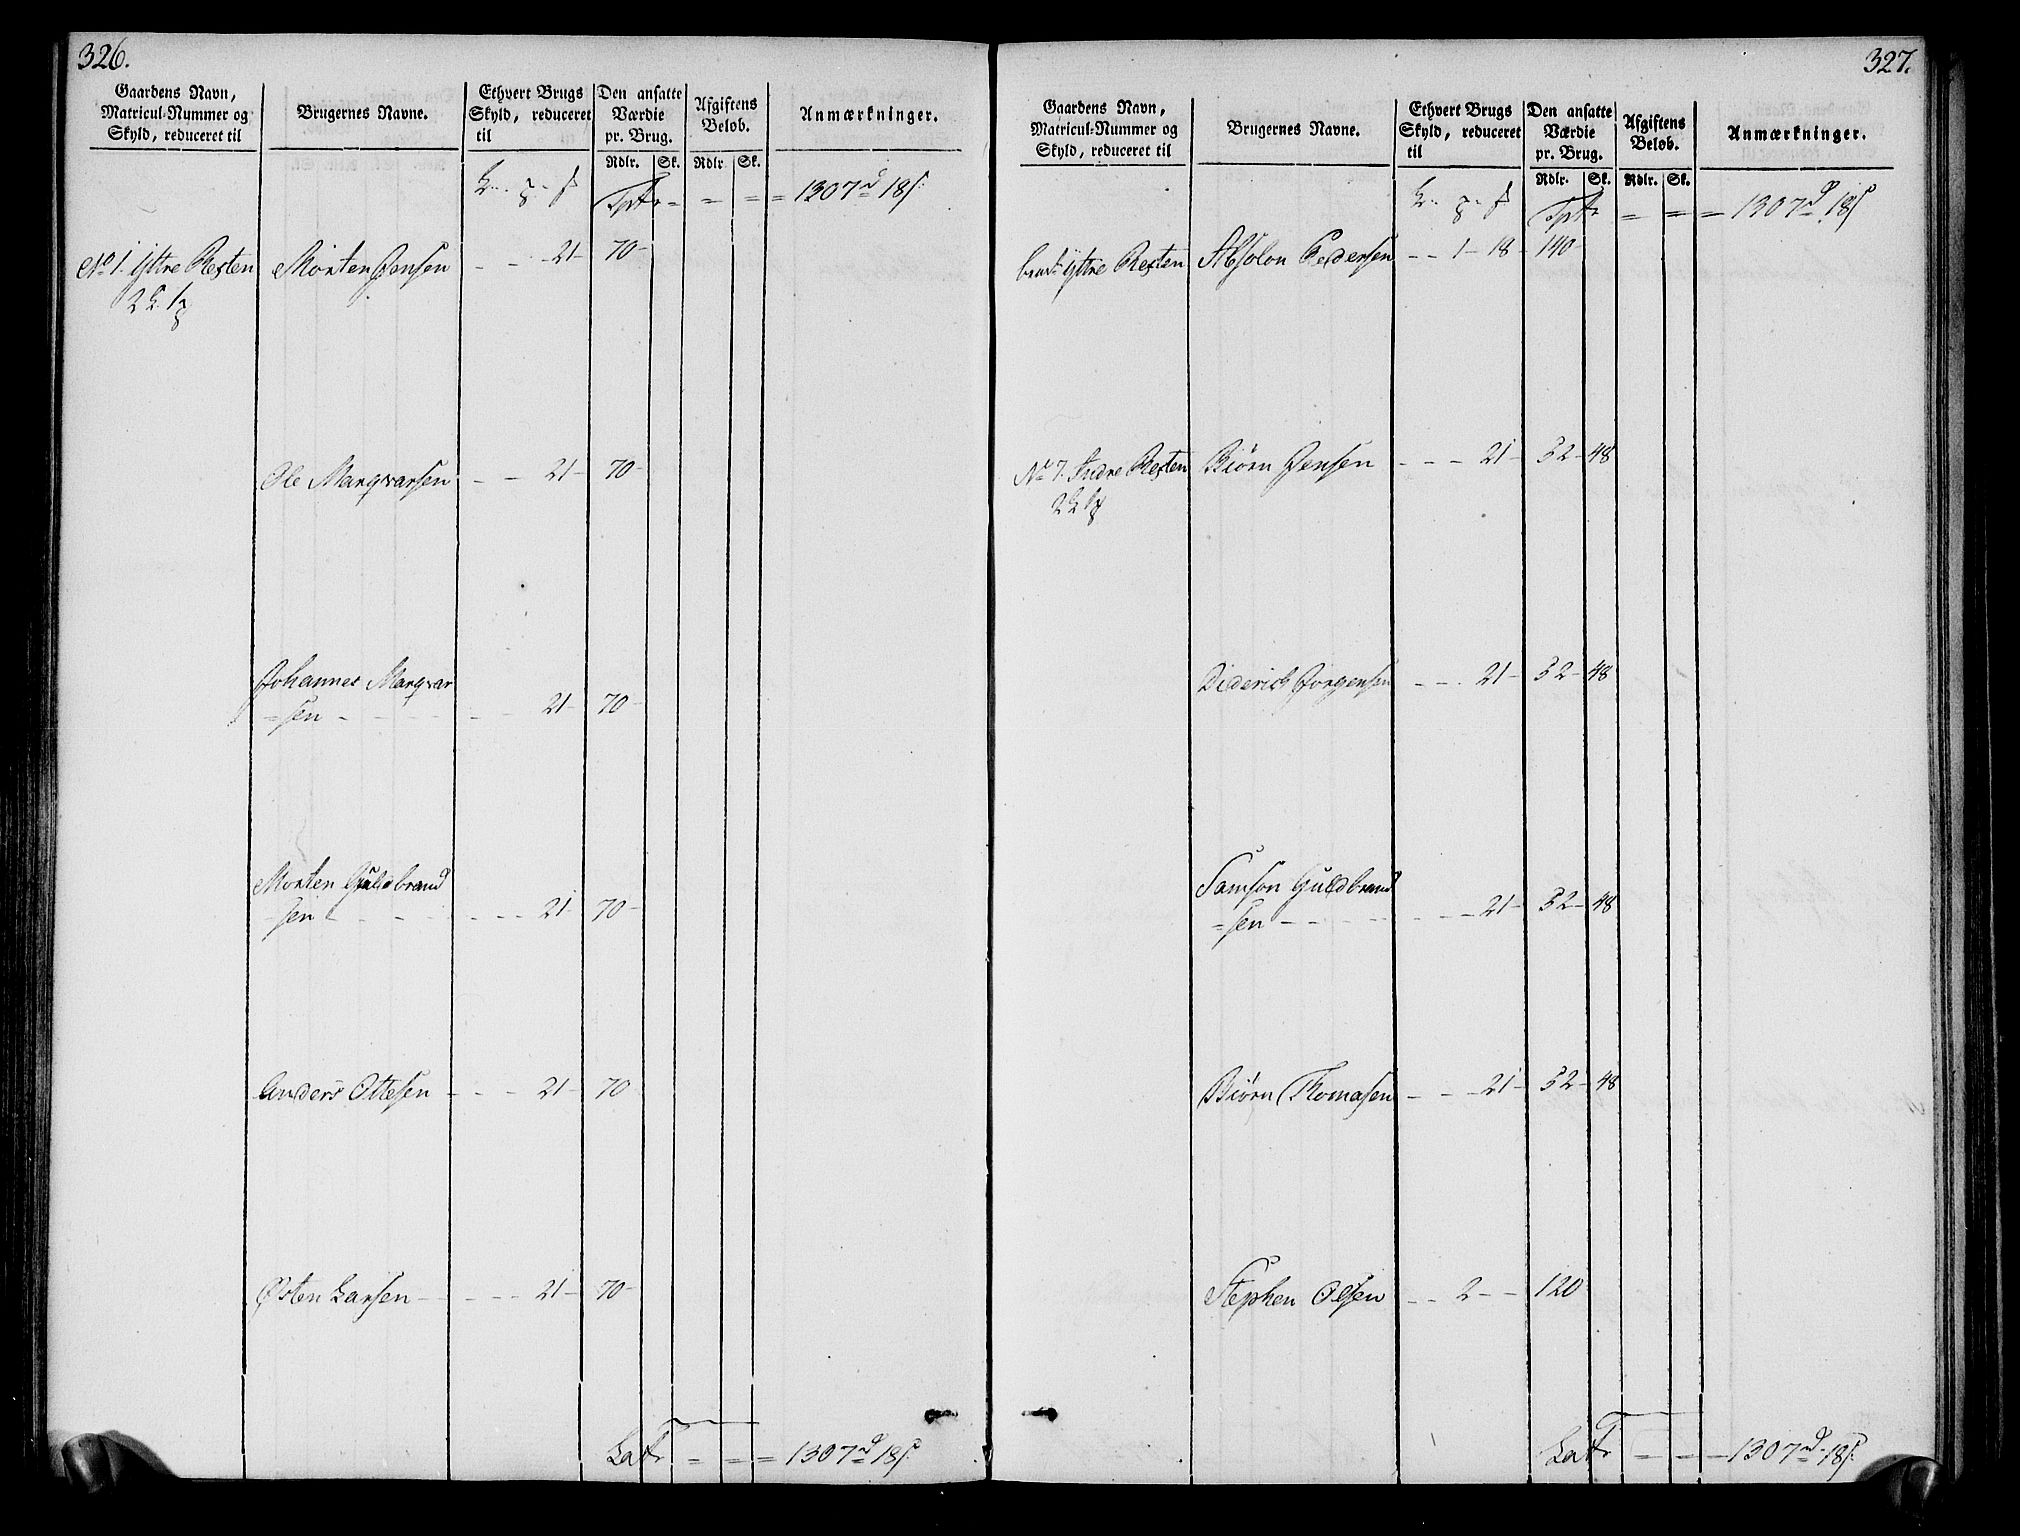 326.
Gaardens Navn,
Matricul-Nummer og
Skyld, reduceret til
Brugernes Navne.
Ethvert Brugs
Skyld, reduceret
til
Den ansatte
Værdie
pr. Brug.
Rdlr. Sk.
Afgiftens
Beløb.
Rdlr Sk.
Anmærkninger.
Tptr = = = = 1307 rd 18 s.
No 1. Yttre Resten Morten Jensen - - 21 - 70 -
Ole Marqvarsen - - 21 - 70 -
Johannes Marqvar
=sen - - - 21 - 70 -
Morten Guldbrand
=sen - - - 21 - 70 -
Anders Ottesen - - - 21 - 70
Østen Larsen - - - 21 - 70 -
Latr = = = 1307 rd 18 s.
327.
Gaardens Navn,
Matricul-Nummer og
Skyld, reduceret til
Brugernes Navne.
Ethvert Brugs
Skyld, reduceret
til
Den ansatte
Værdie
pr. Brug.
Rdlr. Sk.
Afgiftens
Beløb.
Rdlr. Sk.
Anmærkninger.
Tptr = = = 1307 rd 18 s
Yttre Resten Absolon Pedersen - - 1 - 18 - 140 -
No 7. Indre Resten Biørn Jensen - - - 21 - 52 - 48
Diderich Jørgensen - - - 21 - 52 - 48
Samson Guldbrand
=sen - - - 21 - 52 - 48
Biørn Thomasen - - - 21 - 52 - 48
Stephen Olsen - - 2 - - 120
Latr = = = 1307 rd 18 s.